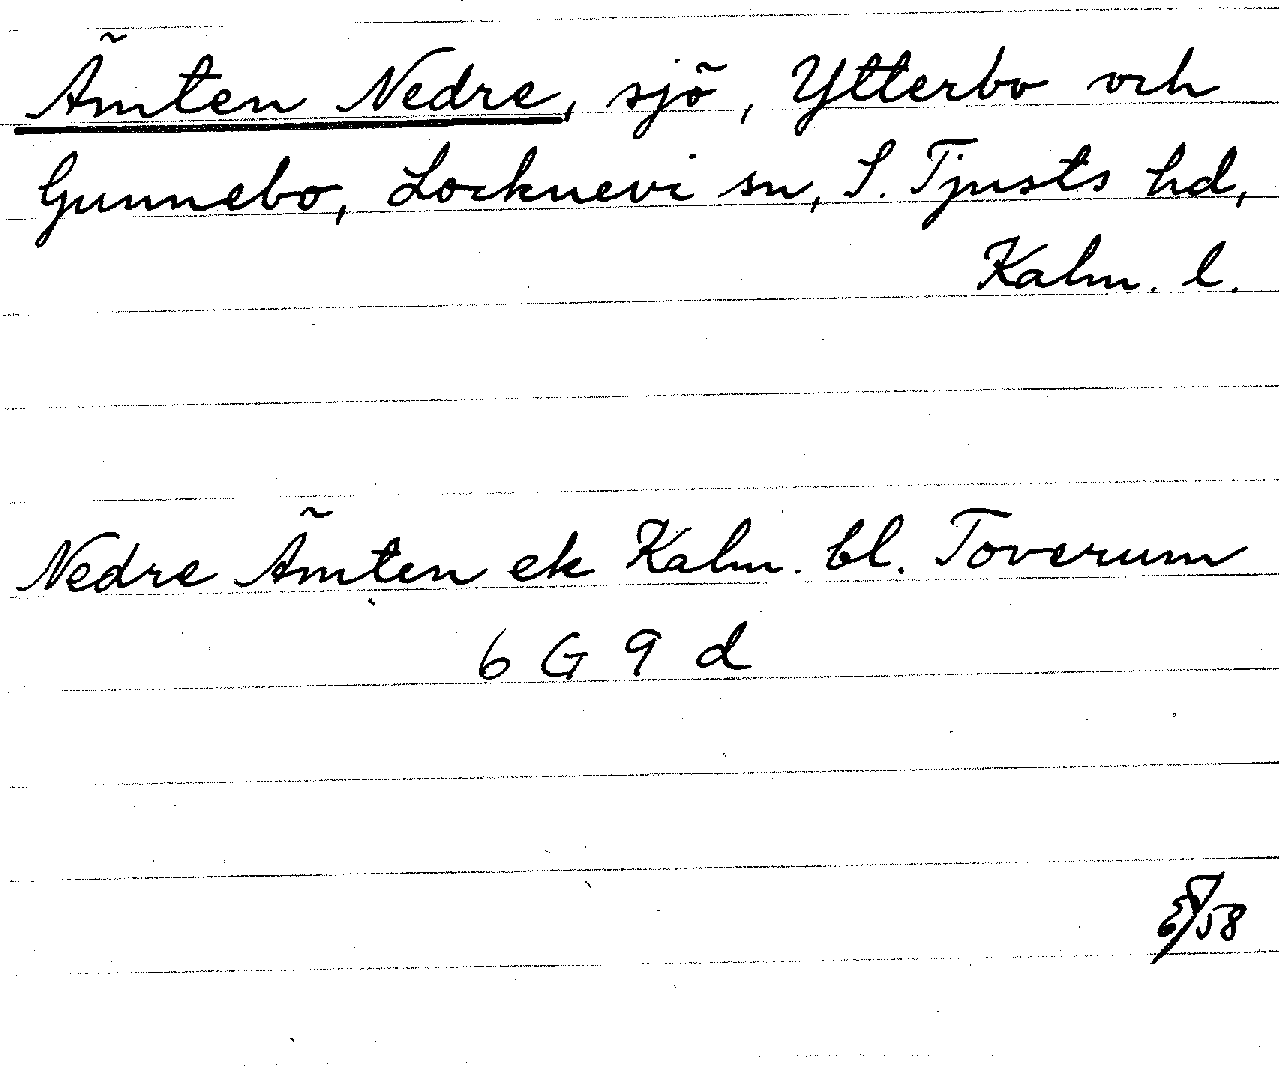 Ämten Nedre, sjö, Ytterbo och
Gunnebo, Locknevi sn, S. Tjusts hd,
Kalm. l.
Nedre Ämten ek Kalm. bl. Toverum
6 G 9 d
/58